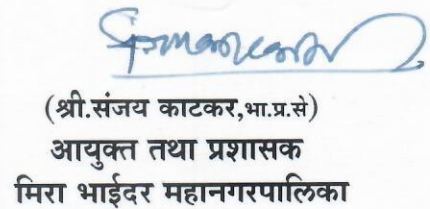 (श्री.संजय काटकर,भा.प्र.से)
आयुक्त तथा प्रशासक
मिरा भाईंदर महानगरपालिका